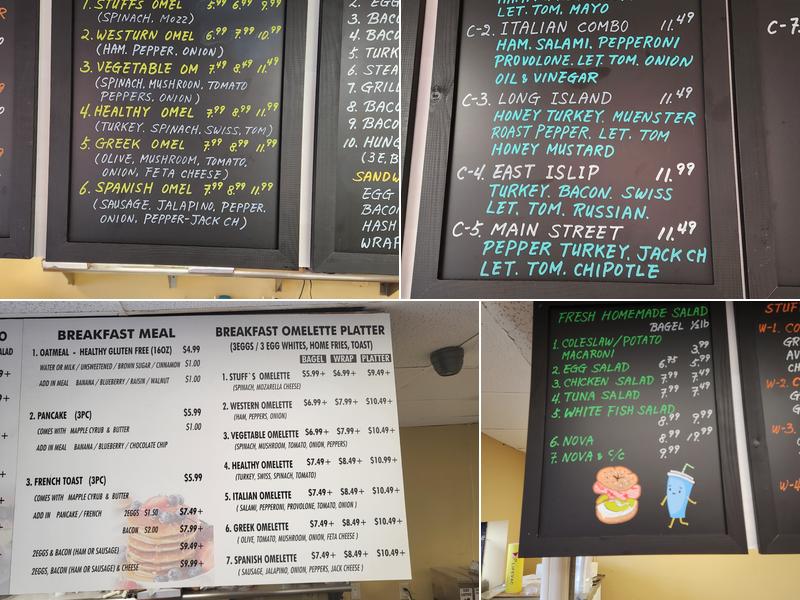 1. STUFFS OMEL 5.99 6.99 9.99
(SPINACH, MOZZ)
2. WESTURN OMEL 6.99 7.99 10.99
(HAM. PEPPER. ONION)
3. VEGETABLE OM 7.49 8.49 11.49
(SPINACH, MUSHROOM, TOMATO
PEPPERS, ONION)
4. HEALTHY OMEL 7.99 8.99 11.99
(TURKEY, SPINACH, SWISS, TOM)
5. GREEK OMEL 7.99 8.99 11.99
(OLIVE, MUSHROOM, TOMATO,
ONION, FETA CHEESE)
6. SPANISH OMEL 7.99 8.99 11.99
(SAUSAGE, JALAPINO, PEPPER,
ONION, PEPPER-JACK CH)
2. EGG
3. BACO
4. BACO
5. TURK
6. STEA
7. GRILL
8. BACO
9. BACO
10. HUNG
(3E,B
SANDW
EGG
BACON
HASH
WRAP
LET. TOM. MAYO
C-2. ITALIAN COMBO 11.49
HAM. SALAMI. PEPPERONI
PROVOLONE. LET. TOM. ONION
OIL & VINEGAR
C-3. LONG ISLAND 11.49
HONEY TURKEY. MUENSTER
ROAST PEPPER. LET. TOM
HONEY MUSTARD
C-4. EAST ISLIP 11.99
TURKEY. BACON. SWISS
LET. TOM. RUSSIAN.
C-5. MAIN STREET 11.49
PEPPER TURKEY. JACK CH
LET. TOM. CHIPOTLE
C-7
BREAKFAST MEAL
1. OATMEAL - HEALTHY GLUTEN FREE (16OZ) $4.99
WATER OR MILK / UNSWEETENED / BROWN SUGAR / CINNAMON $1.00
ADD IN MEAL BANANA / BLUEBERRY / RAISIN / WALNUT $1.00
2. PANCAKE (3PC) $5.99
COMES WITH MAPPLE CYRUB & BUTTER $1.00
ADD IN MEAL BANANA / BLUEBERRY / CHOCOLATE CHIP
3. FRENCH TOAST (3PC) $5.99
COMES WITH MAPPLE CYRUB & BUTTER
ADD IN PANCAKE / FRENCH 2EGGS $1.50 $7.49+
BACON $2.00 $7.99+
2EGGS & BACON (HAM OR SAUSAGE) $9.49+
2EGGS, BACON (HAM OR SAUSAGE) & CHEESE $9.99+
BREAKFAST OMELETTE PLATTER
(3EGGS / 3 EGG WHITES, HOME FRIES, TOAST)
BAGEL WRAP PLATTER
1. STUFF'S OMELETTE $5.99+ $6.99+ $9.49+
(SPINACH, MOZARELLA CHEESE)
2. WESTERN OMELETTE $6.99+ $7.99+ $10.49+
(HAM, PEPPERS, ONION)
3. VEGETABLE OMELETTE $6.99+ $7.99+ $10.49+
(SPINACH, MUSHROOM, TOMATO, ONION, PEPPERS)
4. HEALTHY OMELETTE $7.49+ $8.49+ $10.99+
(TURKEY, SWISS, SPINACH, TOMATO)
5. ITALIAN OMELETTE $7.49+ $8.49+ $10.49+
( SALAMI, PEPPERONI, PROVOLONE, TOMATO, ONION )
6. GREEK OMELETTE $7.49+ $8.49+ $10.49+
( OLIVE, TOMATO, MUSHROOM, ONION, FETA CHEESE )
7. SPANISH OMELETTE $7.49+ $8.49+ $10.49+
( SAUSAGE, JALAPINO, ONION, PEPPERS, JACK CHEESE )
FRESH HOMEMADE SALAD
BAGEL ½lb
1. COLESLAW/POTATO
MACARONI 3.99
2. EGG SALAD 6.75 5.99
3. CHICKEN SALAD 7.99 7.49
4. TUNA SALAD 7.99 7.49
5. WHITE FISH SALAD
8.99 9.99
6. NOVA 8.99 18.99
7. NOVA & C/C 9.99
STUF
W-1. CO
GR
AV
CH
W-2. C
G
W-3.
W-4